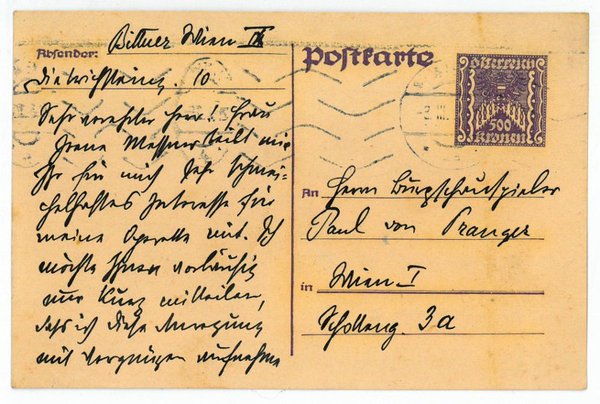 Absender: Bittner Wien IX
Dietrichsteing. 10
Sehr verehrter Herr! Frau
Irene Messner teilt mir
Ihr für mich sehr schmei-
chelhaftes Interesse für
meine Operette mit. Ich
möchte Ihnen vorläufig
nur kurz mitteilen,
daß ich diese Anregung
mit Vergnügen aufnehme
Postkarte
Österreich
500
Kronen
An Herrn Burgschauspieler
Paul von Pranger
in Wien I
Schotteng. 3a